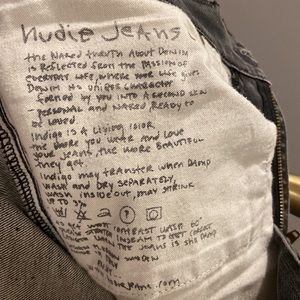 nudie jeans
the Naked truth About Denim
is Reflected from the Passion of
everyday life, where your life gives
Denim its unique character
formed by you into a second skin
personal and naked, ready to
be loved.
Indigo is a living color
the more you wear and love
your jeans, the more beautiful
they get.
Indigo may transfer when damp
wash and dry separately,
wash inside out, may shrink
up to 3%
wash 60°
inseam to get correct
the jeans is still damp